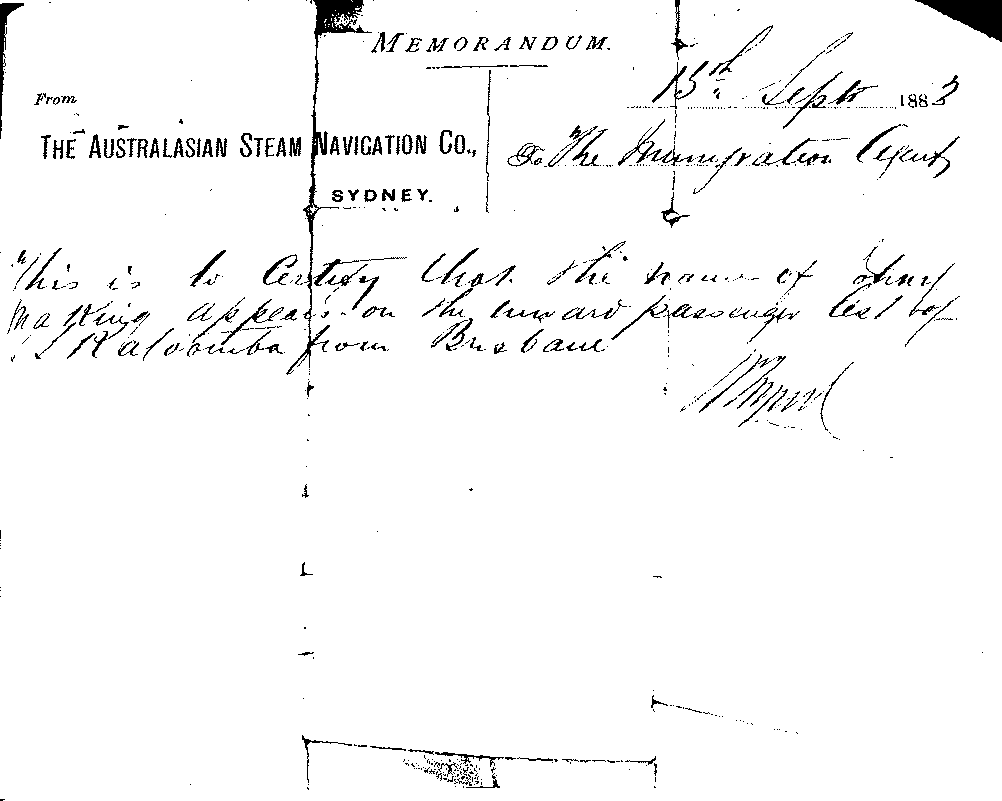 MEMORANDUM.
15th Septr 1883
From
THE AUSTRALASIAN STEAM NAVIGATION CO.,
SYDNEY.
To The Immigration Agent
This is to Certify that the name of
Making appears on the inward passenger list of
Katoomba from Brisbane